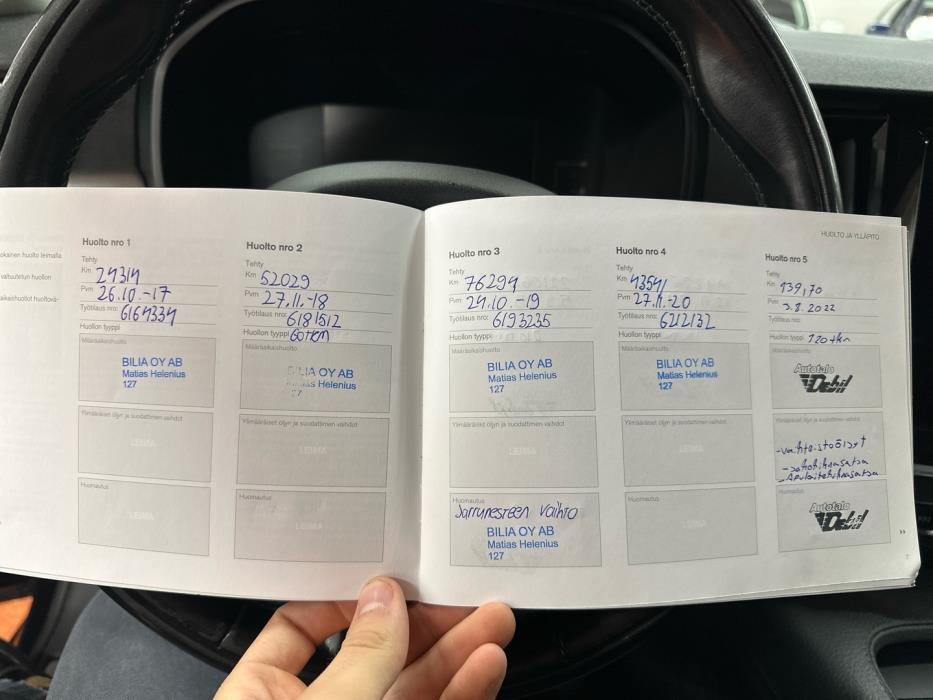 HUOLTO JA YLLÄPITO
okainen huolto leimalla
valtuutetun huollon
aikaishuollot huoltovä-
Huolto nro 1
Tehty
Km 24314
Pvm 26.10.-17
Työtilaus nro: 6164334
Huollon tyyppi
Määräaikaishuolto
BILIA OY AB
Matias Helenius
127
Ylimääräiset öljyn ja suodattimen vaihdot
LEIMA
Huomautus
LEIMA
Huolto nro 2
Tehty
Km 52029
Pvm 27.11.-18
Työtilaus nro: 6181512
Huollon tyyppi 60tkm
Määräaikaishuolto
BILIA OY AB
Matias Helenius
127
Ylimääräiset öljyn ja suodattimen vaihdot
LEIMA
Huomautus
LEIMA
Huolto nro 3
Tehty
Km 76294
Pvm 24.10.-19
Työtilaus nro: 6193235
Huollon tyyppi
Määräaikaishuolto
BILIA OY AB
Matias Helenius
127
Ylimääräiset öljyn ja suodattimen vaihdot
LEIMA
Huomautus
Jarrunesteen vaihto
BILIA OY AB
Matias Helenius
127
Huolto nro 4
Tehty
Km 93541
Pvm 27.11.-20
Työtilaus nro: 6212132
Huollon tyyppi
Määräaikaishuolto
BILIA OY AB
Matias Helenius
127
Ylimääräiset öljyn ja suodattimen vaihdot
LEIMA
Huomautus
LEIMA
Huolto nro 5
Tehty
Km 139,70
Pvm 3.8.2022
Työtilaus nro:
Huollon tyyppi 120tkm
Määräaikaishuolto
Autotalo
Debil
Ylimääräiset öljyn ja suodattimen vaihdot
-vaihteistoöljyt
-jakohihnasarja
-Apulaitehihnasarja
Huomautus
Autotalo
Debil